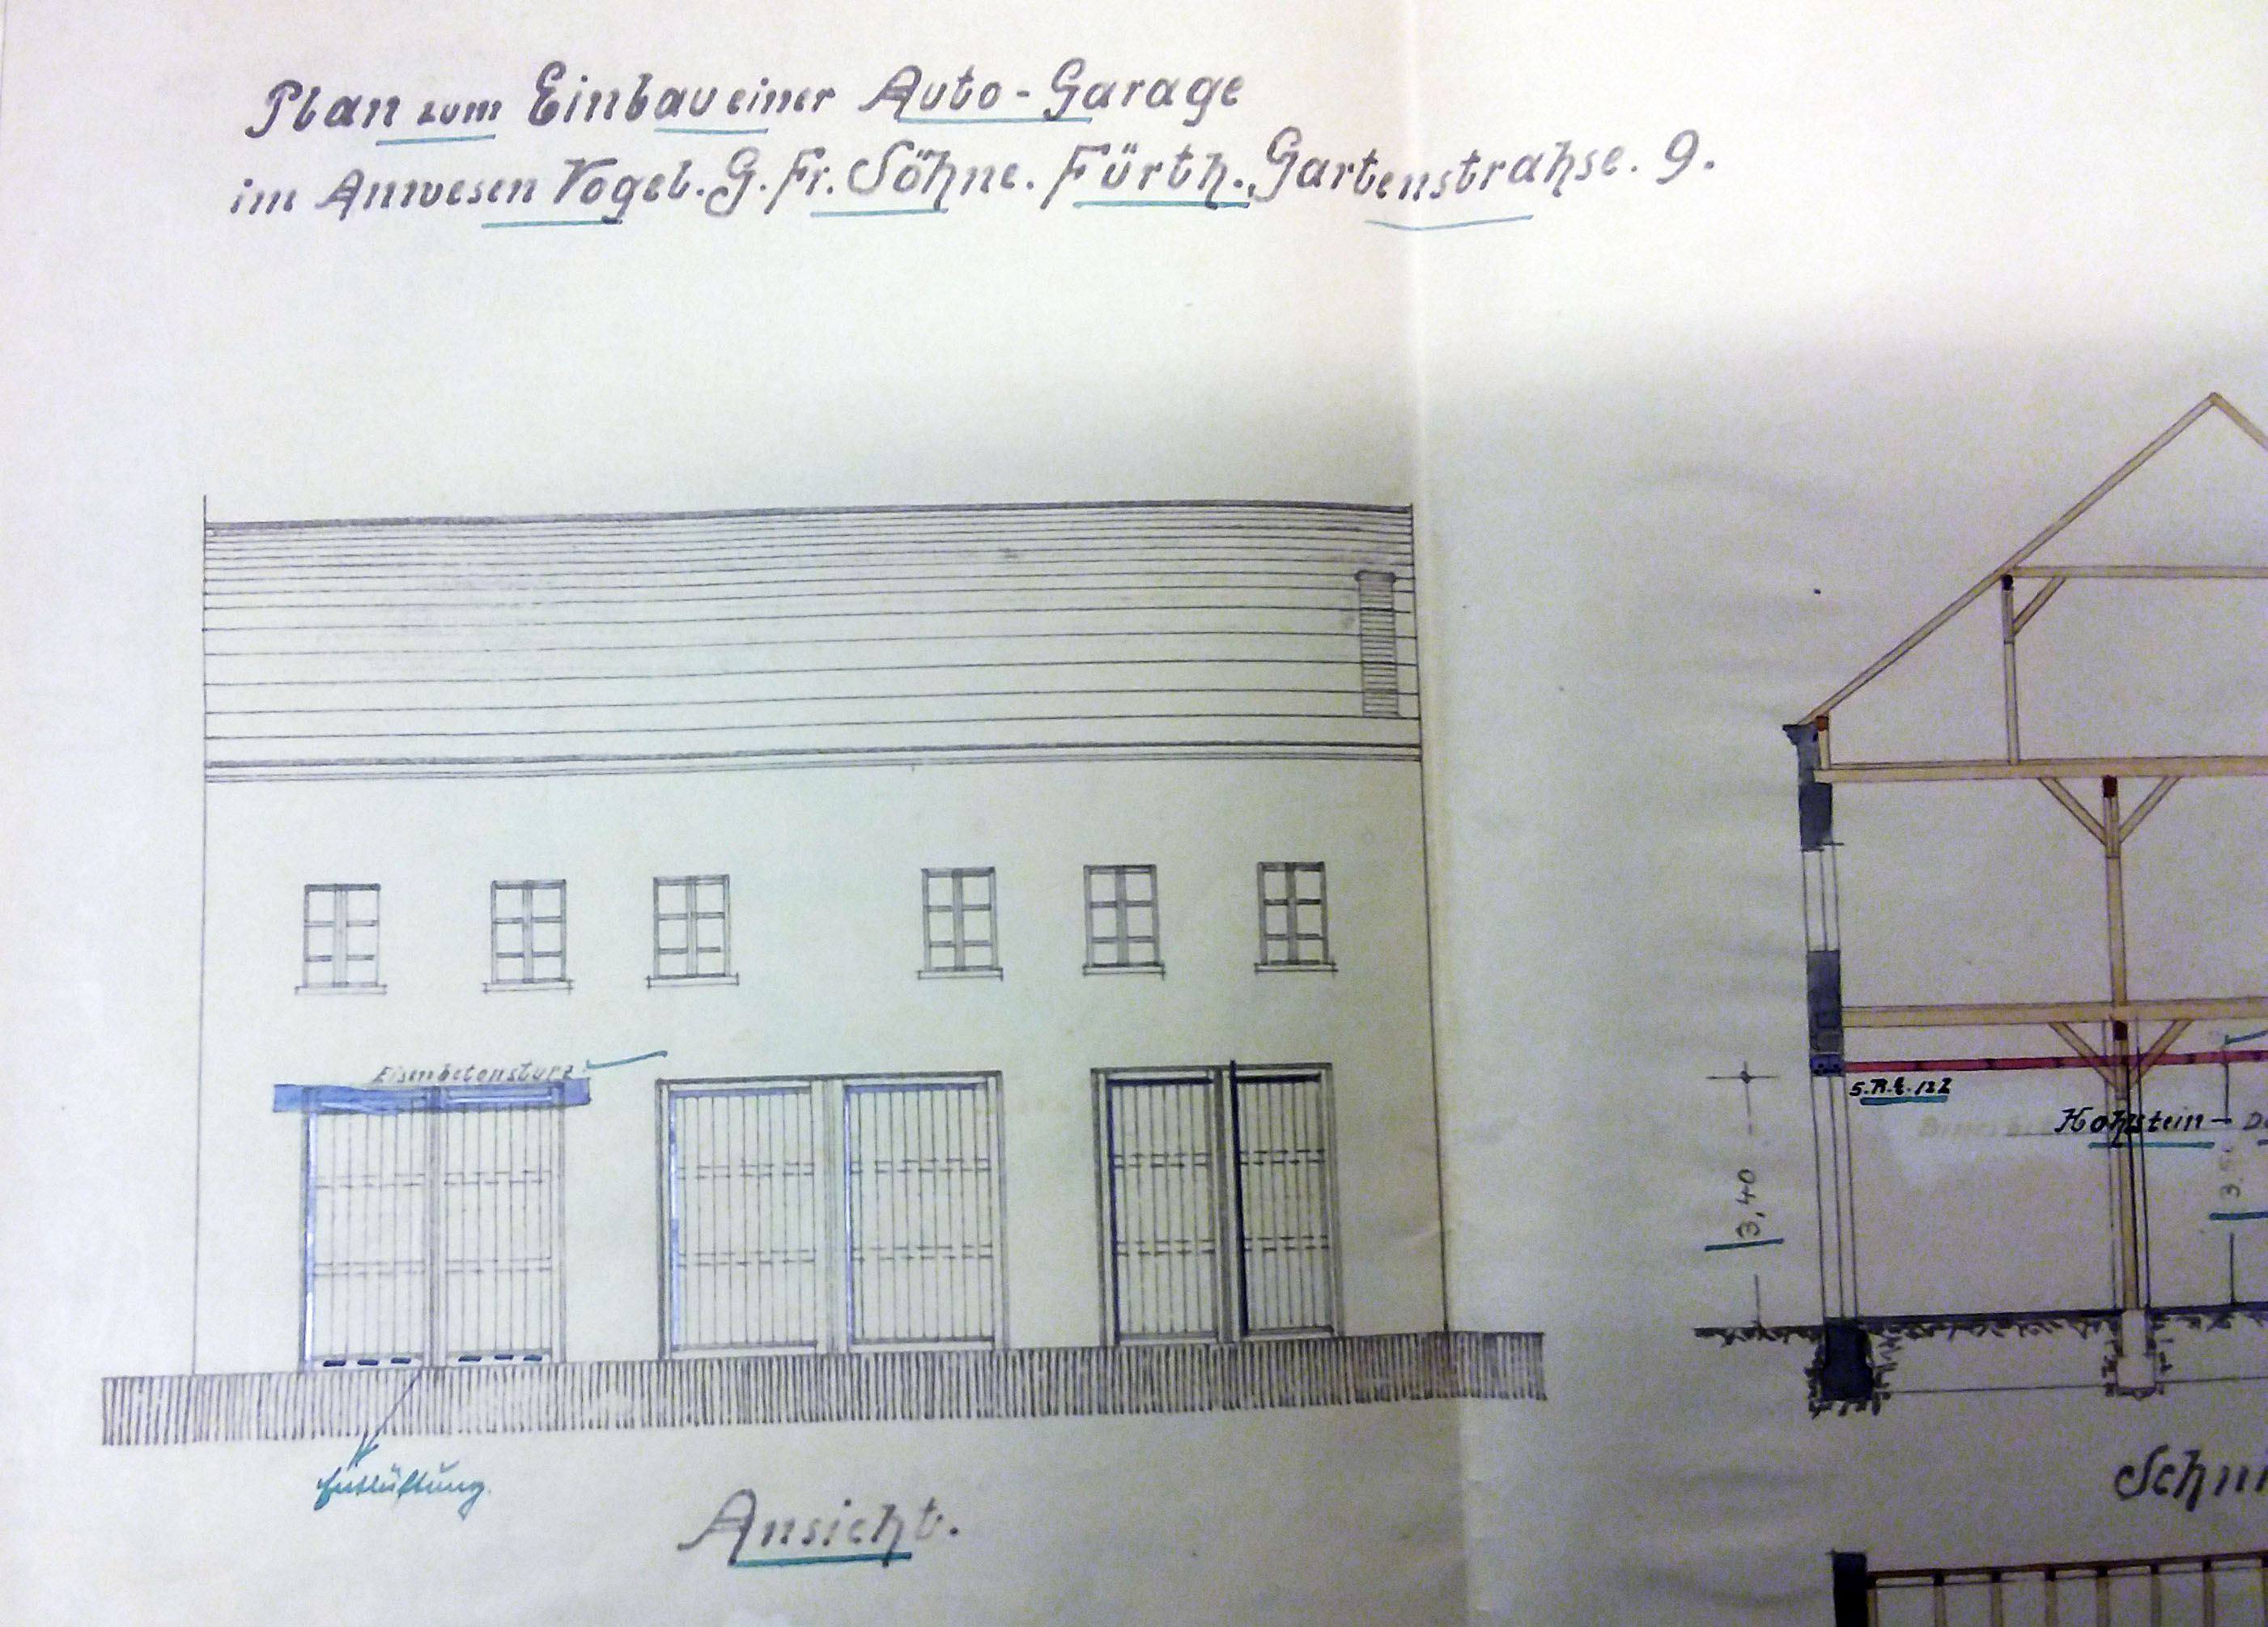 Plan zum Einbau einer Auto-Garage
im Anwesen Vogel. G. Fr. Söhne. Fürth. Gartenstrahse. 9.
Eisenbetonsturz
Entlüftung.
Ansicht.
3,40
Hohlstein-
3.5